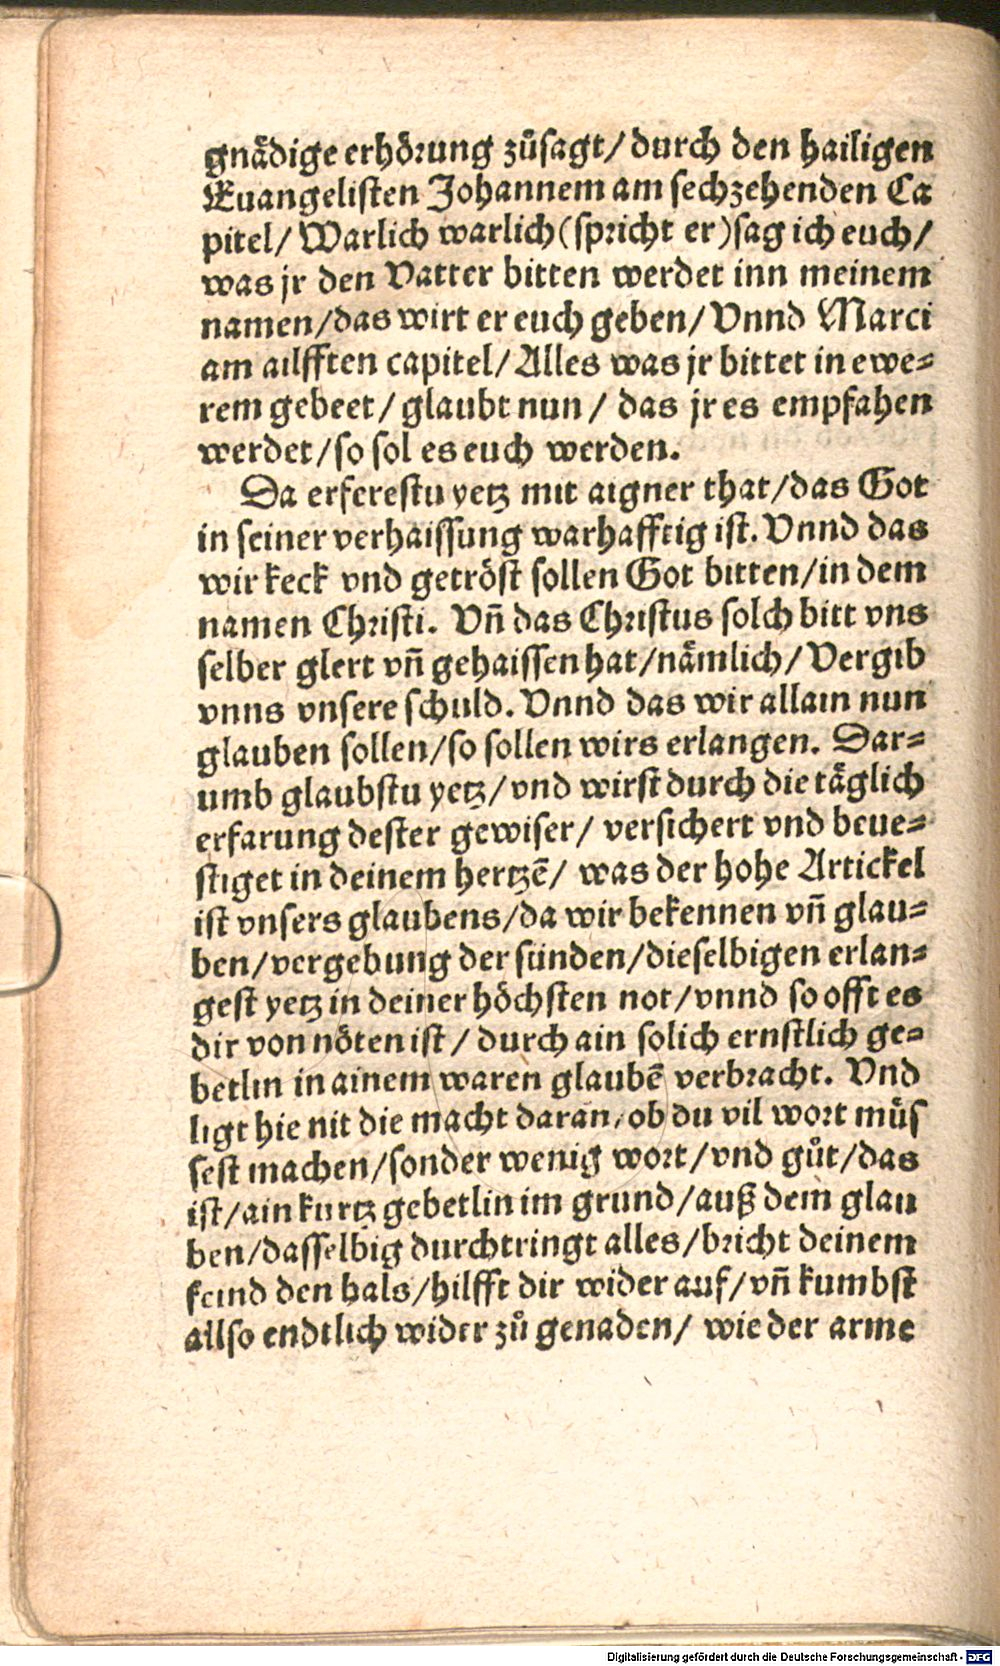 gnaͤdige erhoͤrung zuͦsagt/ durch den hailigen
Euangelisten Johannem am sechzehenden Ca
pitel/ Warlich warlich (spricht er) sag ich euch/
was jr den Vatter bitten werdet inn meinem
namen/ das wirt er euch geben/ Vnnd Marci
am ailfften capitel/ Alles was jr bittet in ewe⸗
rem gebeet/ glaubt nun/ das jr es empfahen
werdet/ so sol es euch werden.
Da erferestu yetz mit aigner that/ das Got
in seiner verhaissung warhafftig ist. Vnnd das
wir keck vnd getroͤst sollen Got bitten/ in dem
namen Christi. Vn̄ das Christus solch bitt vns
selber glert vn̄ gehaissen hat/ naͤmlich/ Vergib
vnns vnsere schuld. Vnnd das wir allain nun
glauben sollen/ so sollen wirs erlangen. Dar⸗
umb glaubstu yetz/ vnd wirst durch die taͤglich
erfarung dester gewiser/ versichert vnd beue⸗
stiget in deinem hertzē/ was der hohe Artickel
ist vnsers glaubens/ da wir bekennen vn̄ glau⸗
ben/ vergebung der sünden/ dieselbigen erlan⸗
gest yetz in deiner hoͤchsten not/ vnnd so offt es
dir von noͤten ist/ durch ain solich ernstlich ge⸗
betlin in ainem waren glaubē verbracht. Vnd
ligt hie nit die macht daran/ ob du vil wort muͤs
sest machen/ sonder wenig wort/ vnd guͦt/ das
ist/ ain kurtz gebetlin im grund/ auß dem glau
ben/ dasselbig durchtringt alles/ bricht deinem
feind den hals/ hilfft dir wider auf/ vn̄ kumbst
allso endtlich wider zuͦ genaden/ wie der arme
Digitalisierung gefördert durch die Deutsche Forschungsgemeinschaft - DFG